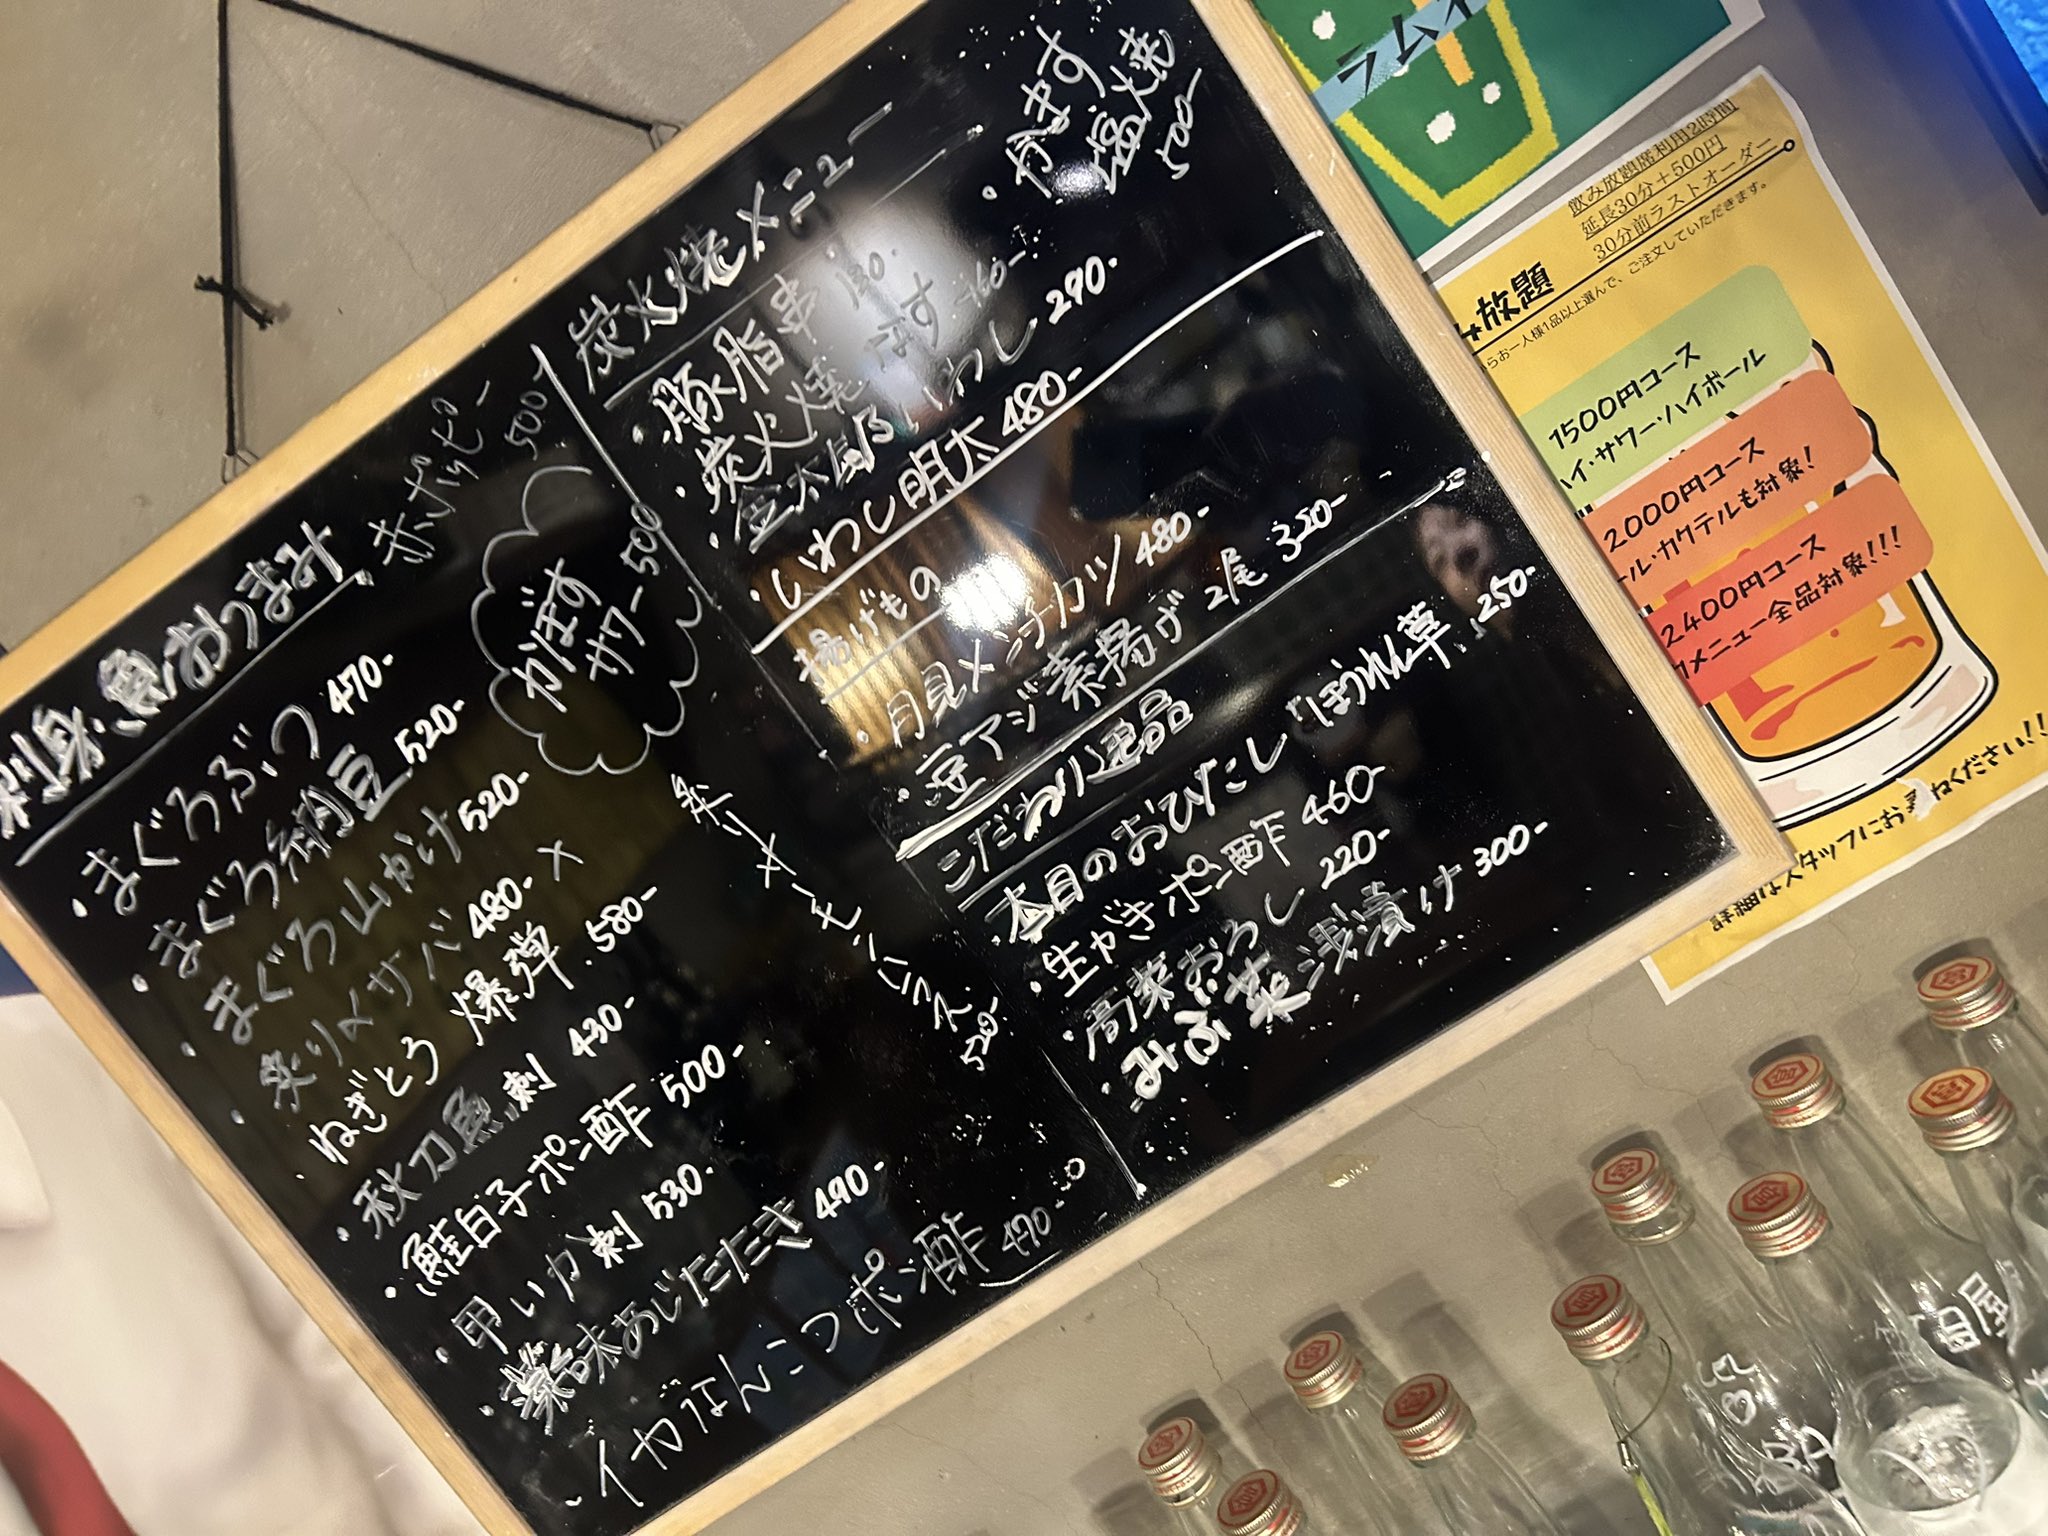 刺身・魚おつまみ
・まぐろぶつ 470-
・まぐろ納豆 520-
・まぐろ山かけ 520-
・炙り〆サバ 480- ×
・ねぎとろ爆弾 580-
・秋刀魚刺 430-
・鮭白子ポン酢 500-
・甲いか刺 530-
・薬味あじたたき 490-
・イカなんこつポン酢 470-
・赤ホッピー
500-
かぼす
サワー500
炙りサーモンハラス
520-
炭火焼メニュー
・豚脂串 180-
・炭火焼なす 460-
・金太郎いわし 290-
・いわし明太 480-
・かます
塩火焼
500-
揚げもの
・月見メンチカツ 480-
・豆アジ素揚げ 2尾 350-
こだわり逸品
本日のおひたし「ほうれん草」250-
・生がきポン酢 460-
・おろし 220-
・みぶ菜浅漬け 300-
ラムイ
飲み放題席利用2時間
延長30分+500円
30分前ラストオーダー
らお一人様1品以上選んで、ご注文していただきます。
み放題
1500円コース
ハイ・サワー・ハイボール
2000円コース
ール・カクテルも対象!
2400円コース
メニュー全品対象!!!
詳細はスタッフにお尋ねください!!
宮
田屋